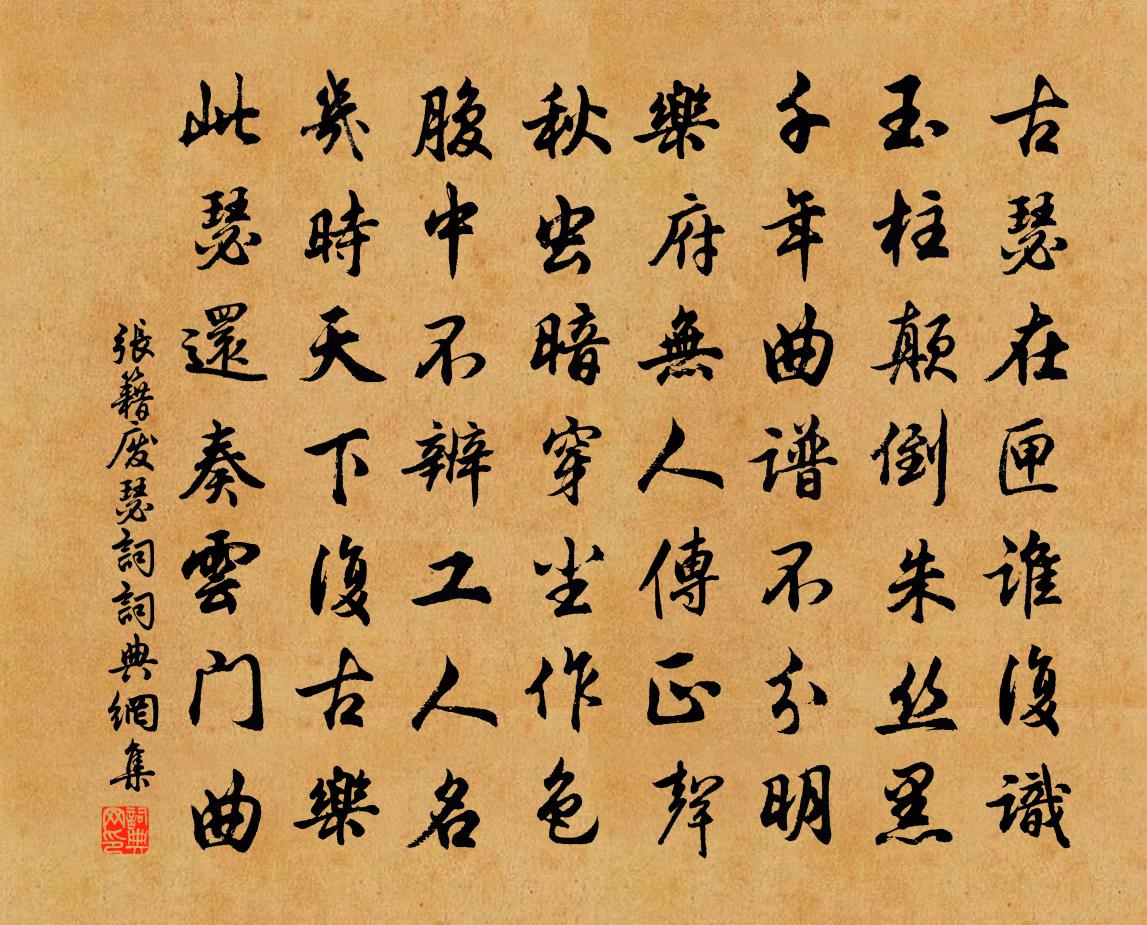 古瑟在匣谁復識
玉柱颠倒朱丝黑
千年曲谱不分明
樂府無人傳正聲
秋虫暗穿尘作色
腹中不辨工人名
幾時天下復古樂
此瑟還奏雲门曲
張籍废瑟詞詞典網集
詞典网印